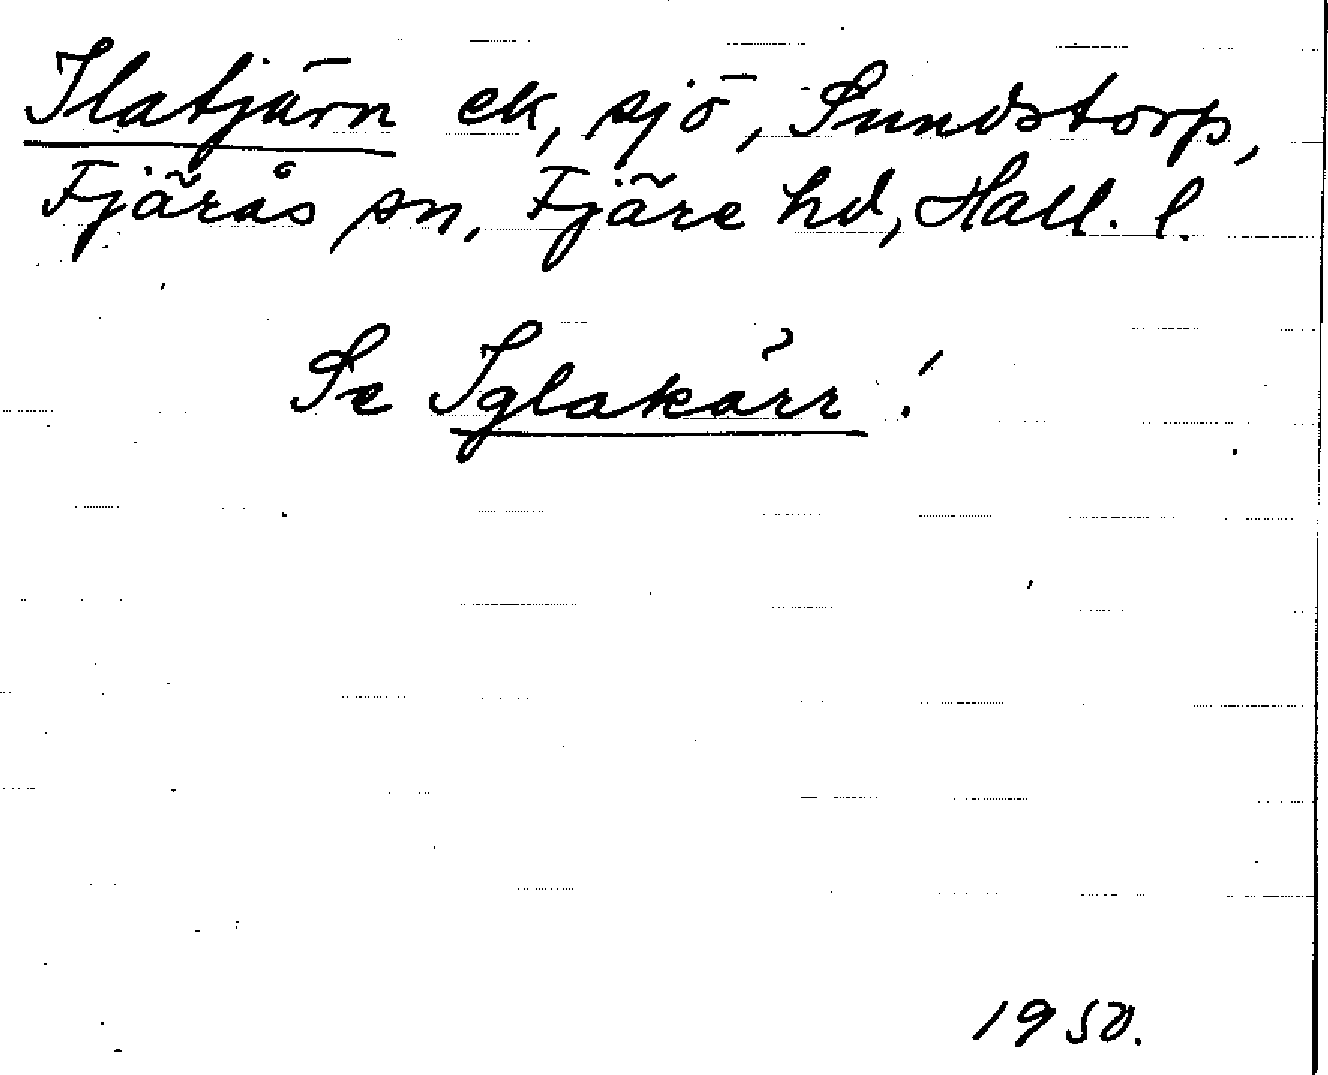 Ilatjärn ek, sjö, Sundstorp,
Fjärås sn, Fjäre hd, Hall. l.
Se Iglakärr!
1950.